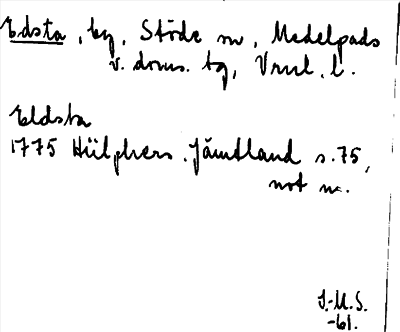 Edsta, by, Stöde sn, Medelpads
v. doms. tg, Vnrl. l.
Eldsta
1775 Hülphers. Jämtland s. 75,
not m.
J.M.S.
-61.